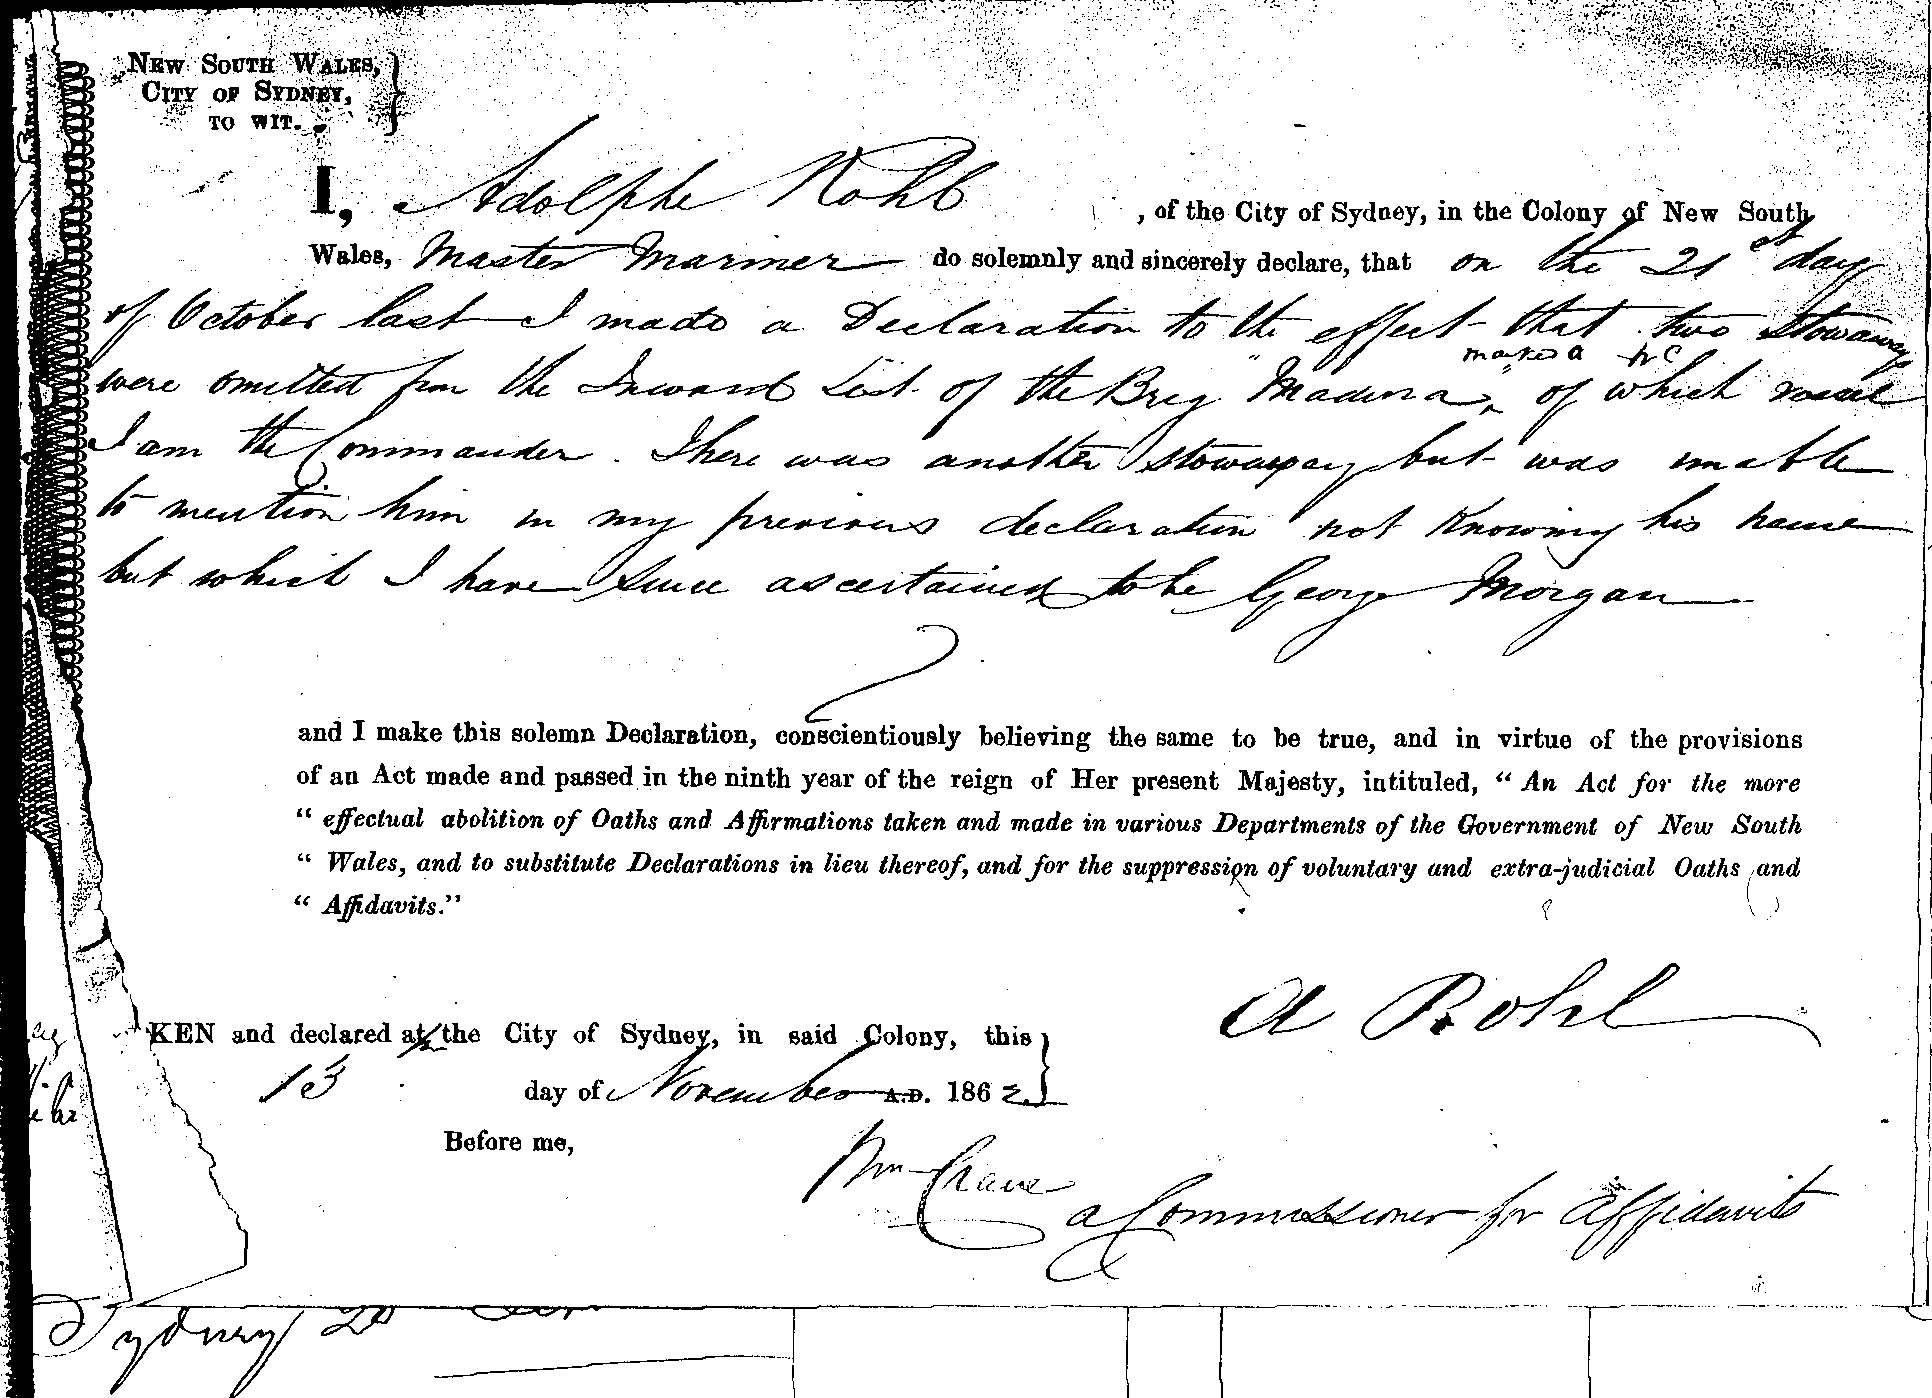 NEW SOUTH WALES,
CITY OF SYDNEY,
TO WIT.
I, Adolphe Rohl, of the City of Sydney, in the Colony of New South
Wales, Master Mariner do solemnly and sincerely declare, that on the 21st day
of October last I made a Declaration to the effect that two Stowaways
marked a
were omitted from the Inward List of the Brig "Madeira" of which vessel
I am the Commander. There was another stowaway but was unable
to mention him in my previous declaration not knowing his name
but which I have since ascertained to be George Morgan
and I make this solemn Declaration, conscientiously believing the same to be true, and in virtue of the provisions
of an Act made and passed in the ninth year of the reign of Her present Majesty, intituled, "An Act for the more
"effectual abolition of Oaths and Affirmations taken and made in various Departments of the Government of New South
"Wales, and to substitute Declarations in lieu thereof, and for the suppression of voluntary and extra-judicial Oaths and
"Affidavits."
A Rohl
KEN and declared at the City of Sydney, in said Colony, this
13 day of November A.D. 1862
Before me,
Wm Crane
a Commissioner for Affidavits
Sydney 20